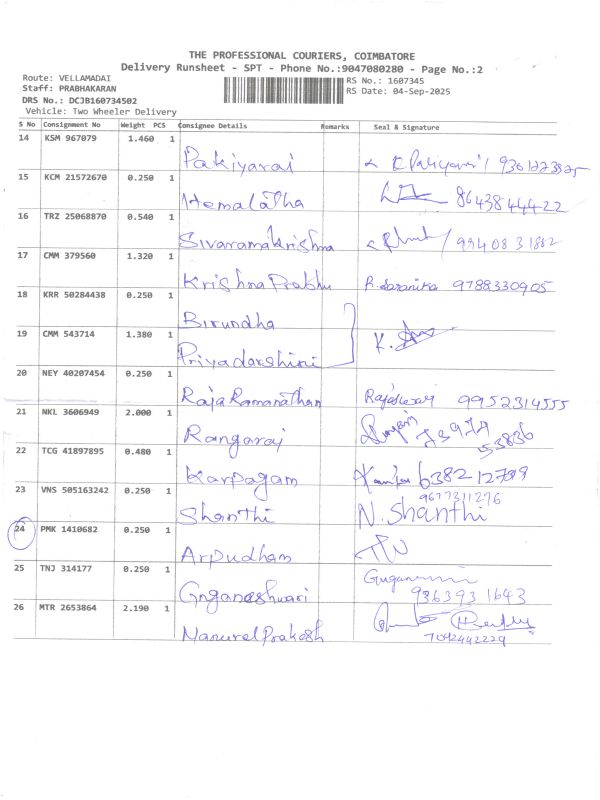 THE PROFESSIONAL COURIERS, COIMBATORE
Delivery Runsheet - SPT - Phone No.:9047080280 - Page No.:2
Route: VELLAMADAI RS No.: 1607345
Staff: PRABHAKARAN RS Date: 04-Sep-2025
DRS No.: DCJB160734502
Vehicle: Two Wheeler Delivery
S No Consignment No Weight PCS Consignee Details Remarks Seal & Signature
14 KSM 967079 1.460 1
Pakiyaraj
15 KCM 21572670 0.250 1
Hemalatha 8643844422
16 TRZ 25068870 0.540 1
Sivaramakrishna
17 CMM 379560 1.320 1
Krishna Prabhu 9788330905
18 KRR 50284438 0.250 1
Birundha
19 CMM 543714 1.380 1
Priyadarshini K.
20 NEY 40207454 0.250 1
Raja Ramanathan 9952314555
21 NKL 3606949 2.000 1
Rangaraj 53836
22 TCG 41897895 0.480 1
Karpagam
23 VNS 505163242 0.250 1 9677311276
Shanthi N. Shanthi
24 PMK 1410682 0.250 1
Arpudham
25 TNJ 314177 0.250 1
Gnganeshwari 9363931643
26 MTR 2653864 2.190 1
Manuvel Prakash 7092442229